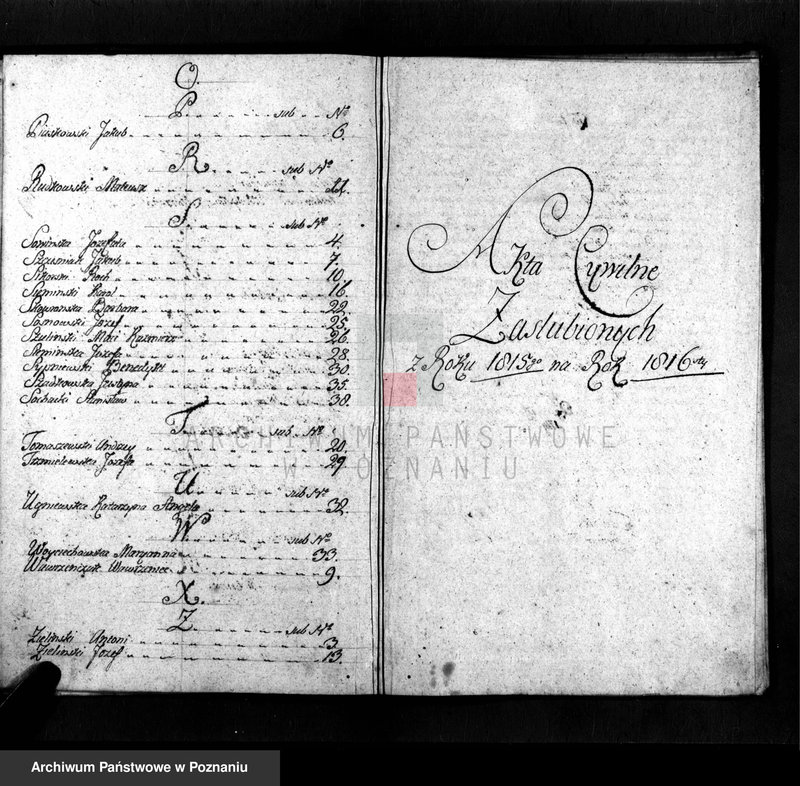 O.
P. sub Nº
Piaskowski Jakub 6.
R. sub Nº
Rudkowski Mateusz 11.
S. sub Nº
Sowińska Jozefata 4.
Szczesniak Jakub 7.
Sikorski Roch 10.
Sieminski 16.
Barbara 22.
Sosnowski Jozef 25.
Szulinski Kazmierz 26.
Slominska Jozefa 28.
Benedykt 30.
Szadkowska Justyna 35.
Sochacki Stanisław 38.
T. sub Nº
Tomaszewski Andrzey 20.
Jozefa 29.
U. sub Nº
Ugniewska Katarzyna Angela 32.
W. sub Nº
Woyciechowska Maryanna 33.
Wawrzeniec 9.
X.
Z. sub Nº
Zielinski Antoni 3.
Zielinski Jozef 13.
Akta Cywilne
Zaslubionych
z Roku 1815go na Rok 1816sty
ARCHIWUM PAŃSTWOWE
W POZNANIU
Archiwum Państwowe w Poznaniu